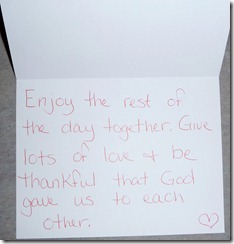 Enjoy the rest of
the day together. Give
lots of love & be
thankful that God
gave us to each
other.